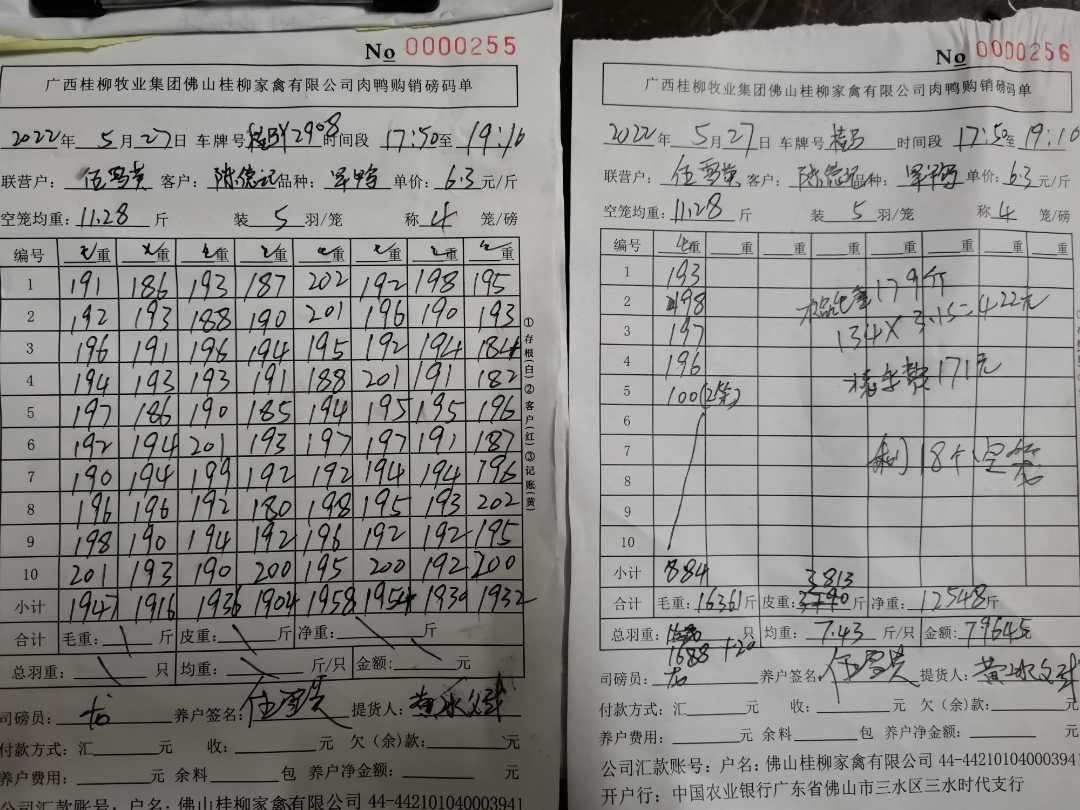 No 0000255
广西桂柳牧业集团佛山桂柳家禽有限公司肉鸭购销磅码单
2022年 5月27日 车牌号 桂BY2908 时间段 17:50至19:10
联营户: 伍雪英 客户: 陈德记 品种: 单价: 6.3元/斤
空笼均重: 11.28 斤 装 5 羽/笼 称 4 笼/磅
编号 重 重 重 重 重 重 重 重
1 191 186 193 187 202 192 198 195
2 192 193 188 190 201 196 190 193
3 196 191 196 194 195 192 194 184
4 194 193 193 191 188 201 191 182
5 197 186 190 185 194 195 195 196
6 192 194 201 193 197 197 191 187
7 190 194 199 192 192 194 194 196
8 196 196 192 180 198 195 193 202
9 198 190 194 192 196 192 192 195
10 201 193 190 200 195 200 192 200
小计 1947 1916 1936 1904 1958 1954 1930 1932
合计 毛重: 斤 皮重: 斤 净重: 斤
总羽重: 只 均重: 斤/只 金额: 元
司磅员: 养户签名: 提货人:
付款方式:汇 元 收: 元 欠(余)款: 元
养户费用: 元 余料 包 养户净金额: 元
公司汇款账号:户名:佛山桂柳家禽有限公司 44-442101040003941
①存根(白)②客户(红)③记账(黄)
No 0000256
广西桂柳牧业集团佛山桂柳家禽有限公司肉鸭购销磅码单
2022年 5月27日 车牌号 桂B 时间段 17:50至19:10
联营户: 伍雪英 客户: 陈德记 品种: 单价: 6.3元/斤
空笼均重: 11.28 斤 装 5 羽/笼 称 4 笼/磅
编号 重 重 重 重 重 重 重 重
1 193
2 198 179斤
3 197 134X3.15=422元
4 196 171元
5 100(2笼)
6
7 18个空笼
8
9
10
小计 884 3813
合计 毛重: 16361斤 皮重: 斤 净重: 12548斤
总羽重: 均重: 7.43 斤/只 金额: 79645
1688 +20
司磅员: 养户签名: 提货人:
付款方式:汇 元 收: 元 欠(余)款: 元
养户费用: 元 余料 包 养户净金额: 元
公司汇款账号:户名:佛山桂柳家禽有限公司 44-442101040003941
开户行:中国农业银行广东省佛山市三水区三水时代支行